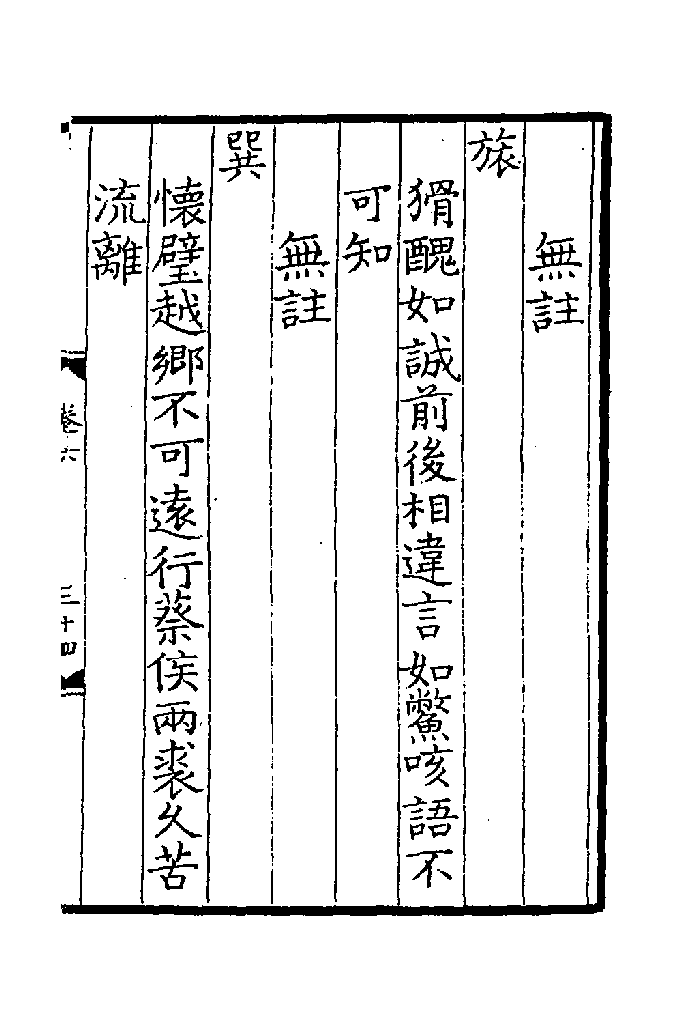 無註
旅
猾醜如誠前後相違言如鼈咳語不
可知
無註
巽
懷璧越鄉不可遠行蔡侯兩裘久苦
流離
卷六
三十四